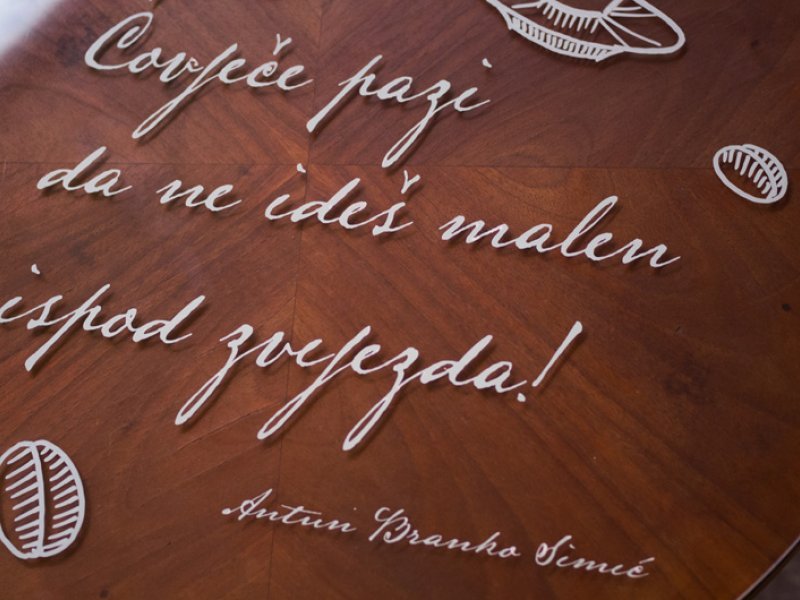 Čovječe pazi
da ne ideš malen
ispod zvijezda!
Antun Branko Šimić